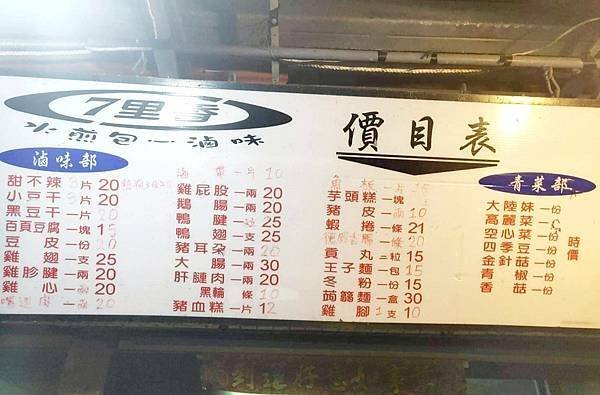 7里香
水煎包一滷味
價目表
滷味部
甜不辣 3片 20
小豆干 5片 20
黑豆干 2片 20
百頁豆腐 一塊 15
豆皮 一份 20
雞翅 一支 25
雞胗 一兩 20
雞心 一兩 20
海帶 一片 10
雞屁股 一兩 20
鵝腸 一兩 20
鴨腱 一 25
鴨翅 一支 25
豬耳朵 一兩 20
大腸 一兩 30
肝腱肉 一兩 20
黑輪 一條 10
豬血糕 一片 12
一片 15
芋頭糕 一塊
豬皮 一兩 10
蝦捲 一條 21
一條 20
貢丸 二粒 15
王子麵 一包 15
冬粉 一份 15
蒟蒻麵 一盒 30
雞腳 1支 10
青菜部
大陸妹 一份
高麗菜 一份
空心菜 一份
四季豆 一份
金針菇 一份
青椒 一份
香菇 一份
時價